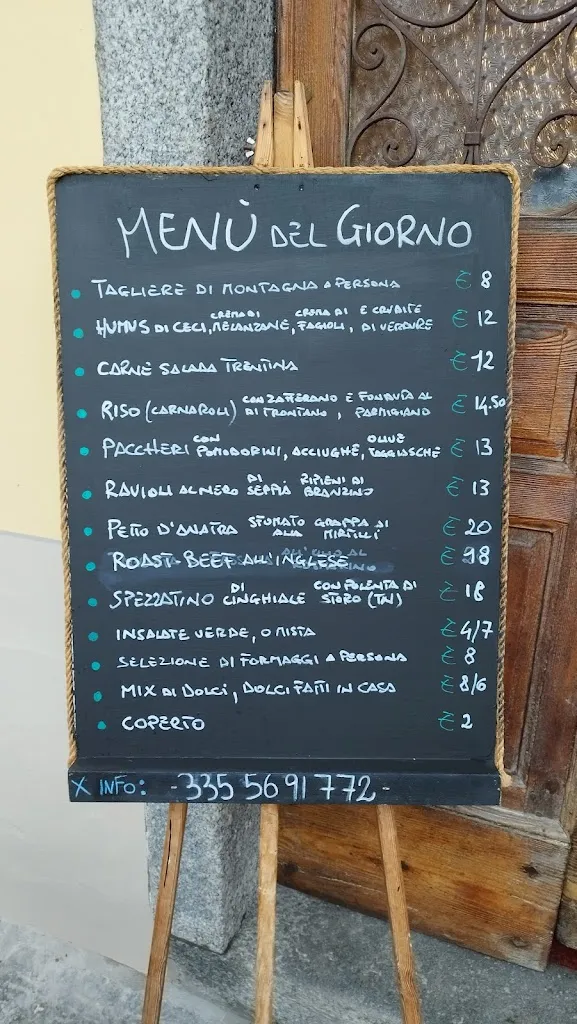 MENÙ DEL GIORNO
TAGLIERE DI MONTAGNA A PERSONA € 8
HUMUS DI CECI, CREMA DI MELANZANE, CREMA DI FAGIOLI, E CRUDITE DI VERDURE € 12
CARNE SALADA TRENTINA € 12
RISO (CARNAROLI) CON ZAFFERANO E FONDUTA AL DI TRONTANO, PARMIGIANO € 14,50
PACCHERI CON POMODORINI, ACCIUGHE, OLIVE TAGGIASCHE € 13
RAVIOLI AL NERO DI SEPPIA RIPIENI DI BRANZINO € 13
PETTO D'ANATRA SFUMATO ALLA GRAPPA AI MIRTILLI € 20
ROAST BEEF ALL'INGLESE € 18
SPEZZATINO DI CINGHIALE CON POLENTA DI STORO (TN) € 18
INSALATE VERDE, O MISTA € 4/7
SELEZIONE DI FORMAGGI A PERSONA € 8
MIX DI DOLCI, DOLCI FATTI IN CASA € 8/6
COPERTO € 2
X INFO: -335 5691772-